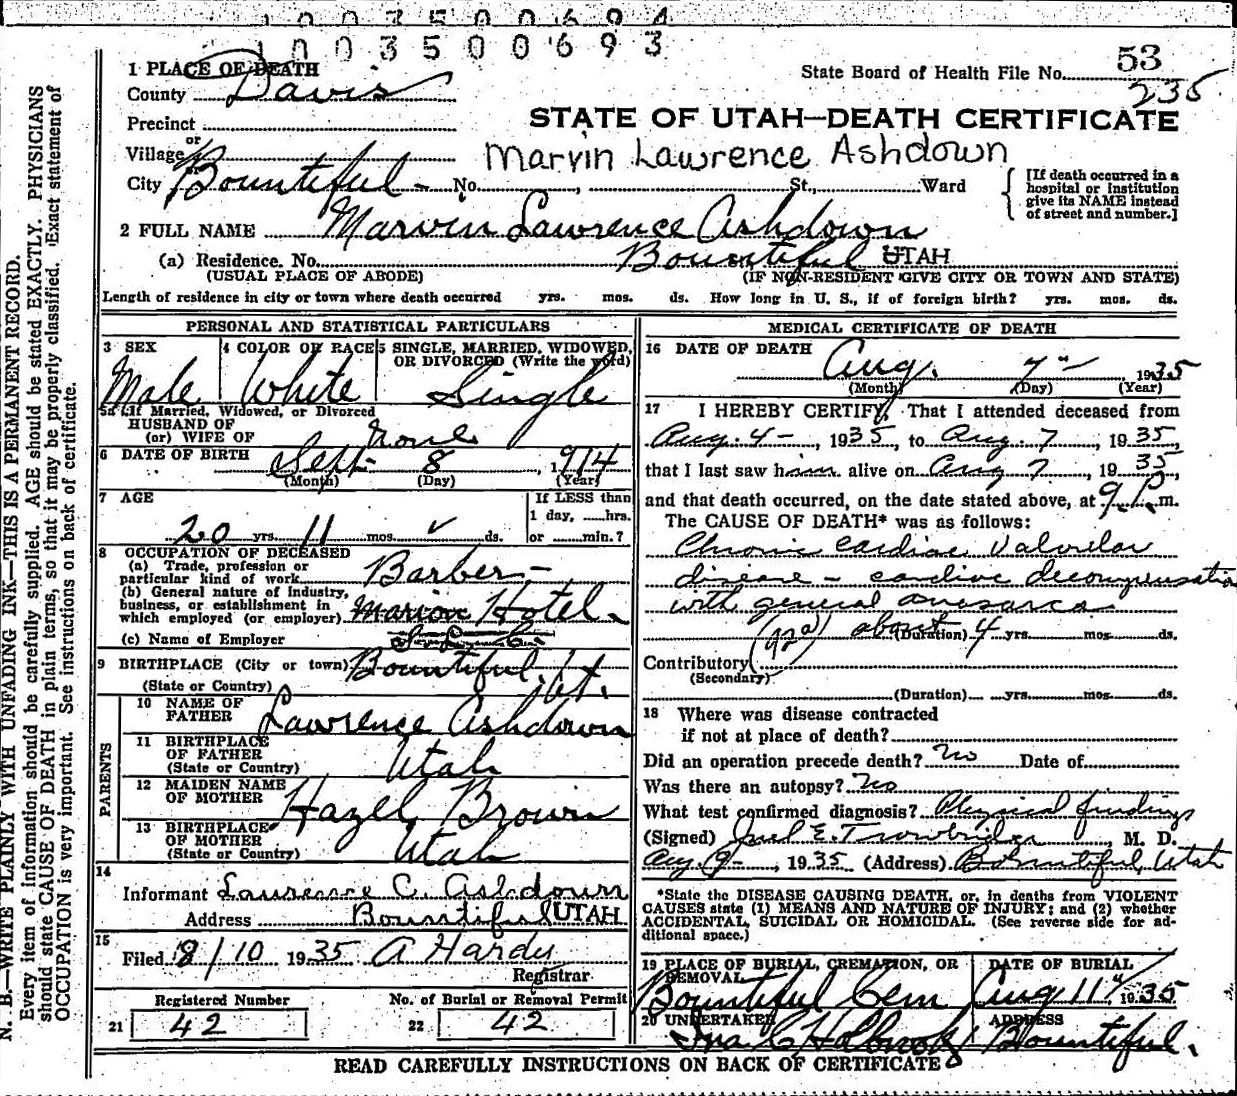 1 0 0 3 5 0 0 6 9 4
1 0 0 3 5 0 0 6 9 3
53
1 PLACE OF DEATH
State Board of Health File No.
235
County Davis
Precinct
STATE OF UTAH—DEATH CERTIFICATE
or
Village
Marvin Lawrence Ashdown
City Bountiful - No. , St., Ward
[If death occurred in a hospital or institution give its NAME instead of street and number.]
2 FULL NAME Marvin Lawrence Ashdown
(a) Residence. No. Bountiful UTAH
(USUAL PLACE OF ABODE) (IF NON-RESIDENT GIVE CITY OR TOWN AND STATE)
Length of residence in city or town where death occurred yrs. mos. ds. How long in U. S., if of foreign birth? yrs. mos. ds.
PERSONAL AND STATISTICAL PARTICULARS
3 SEX 4 COLOR OR RACE 5 SINGLE, MARRIED, WIDOWED, OR DIVORCED (Write the word)
Male White Single
5a If Married, Widowed, or Divorced
HUSBAND OF
(or) WIFE OF None
6 DATE OF BIRTH Sept 8 , 1914
(Month) (Day) (Year)
7 AGE If LESS than
1 day, hrs.
20 yrs. 11 mos. ✓ ds. or min.?
8 OCCUPATION OF DECEASED
(a) Trade, profession or
particular kind of work Barber -
(b) General nature of industry,
business, or establishment in
which employed (or employer) Marion Hotel.
(c) Name of Employer
9 BIRTHPLACE (City or town) Bountiful, Ut.
(State or Country)
PARENTS
10 NAME OF
FATHER Lawrence Ashdown
11 BIRTHPLACE
OF FATHER Utah
(State or Country)
12 MAIDEN NAME
OF MOTHER Hazel Brown
13 BIRTHPLACE
OF MOTHER Utah
(State or Country)
14
Informant Lawrence C. Ashdown
Address Bountiful UTAH
15
Filed 8/10 1935 A Hardy
Registrar
Registered Number No. of Burial or Removal Permit
21 42 22 42
MEDICAL CERTIFICATE OF DEATH
16 DATE OF DEATH Aug. 7" 1935
(Month) (Day) (Year)
17 I HEREBY CERTIFY, That I attended deceased from
Aug. 4 - , 1935, to Aug. 7 , 1935,
that I last saw him alive on Aug 7 , 1935,
and that death occurred, on the date stated above, at 9 P. m.
The CAUSE OF DEATH* was as follows:
Chronic Cardiac Valvular
disease - cardiac decompensation
with general anasarca
(92a) about (Duration) 4 yrs. mos. ds.
Contributory
(Secondary)
(Duration) yrs. mos. ds.
18 Where was disease contracted
if not at place of death?
Did an operation precede death? No Date of
Was there an autopsy? No
What test confirmed diagnosis? Physical findings
(Signed) Joel E. Trowbridge M. D.
Aug 9 - , 1935 (Address) Bountiful, Utah
*State the DISEASE CAUSING DEATH, or, in deaths from VIOLENT
CAUSES state (1) MEANS AND NATURE OF INJURY; and (2) whether
ACCIDENTAL, SUICIDAL OR HOMICIDAL. (See reverse side for ad-
ditional space.)
19 PLACE OF BURIAL, CREMATION, OR REMOVAL DATE OF BURIAL
Bountiful Cem Aug 11" 1935
20 UNDERTAKER ADDRESS
Holbrook Bountiful.
READ CAREFULLY INSTRUCTIONS ON BACK OF CERTIFICATE
N. B.—WRITE PLAINLY WITH UNFADING INK—THIS IS A PERMANENT RECORD.
Every item of information should be carefully supplied. AGE should be stated EXACTLY. PHYSICIANS
should state CAUSE OF DEATH in plain terms, so that it may be properly classified. Exact statement of
OCCUPATION is very important. See instructions on back of certificate.